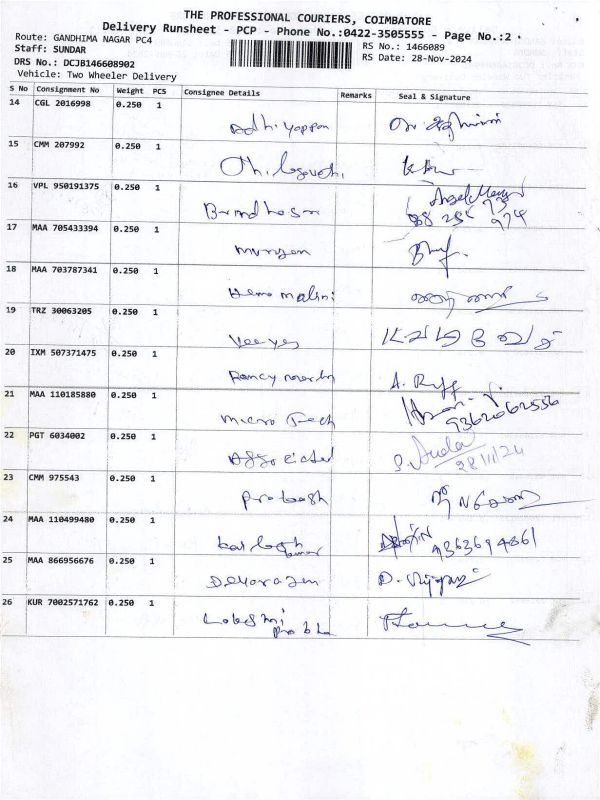 THE PROFESSIONAL COURIERS, COIMBATORE
Delivery Runsheet - PCP - Phone No.:0422-3505555 - Page No.:2
Route: GANDHIMA NAGAR PC4
RS No.: 1466089
Staff: SUNDAR
RS Date: 28-Nov-2024
DRS No.: DCJB146608902
Vehicle: Two Wheeler Delivery
S No Consignment No Weight PCS Consignee Details Remarks Seal & Signature
14 CGL 2016998 0.250 1
Adhiyappan
15 CMM 207992 0.250 1
16 VPL 950191375 0.250 1
17 MAA 705433394 0.250 1
murugan
18 MAA 703787341 0.250 1
Hema malini
19 TRZ 30063205 0.250 1
Veeyes
20 IXM 507371475 0.250 1
21 MAA 110185880 0.250 1
micro Tech 9362062556
22 PGT 6034002 0.250 1
Associated 28/11/24
23 CMM 975543 0.250 1
prakash
24 MAA 110499480 0.250 1
9363694861
25 MAA 866956676 0.250 1
Devarajan
26 KUR 7002571762 0.250 1
Lakshmi
prabha